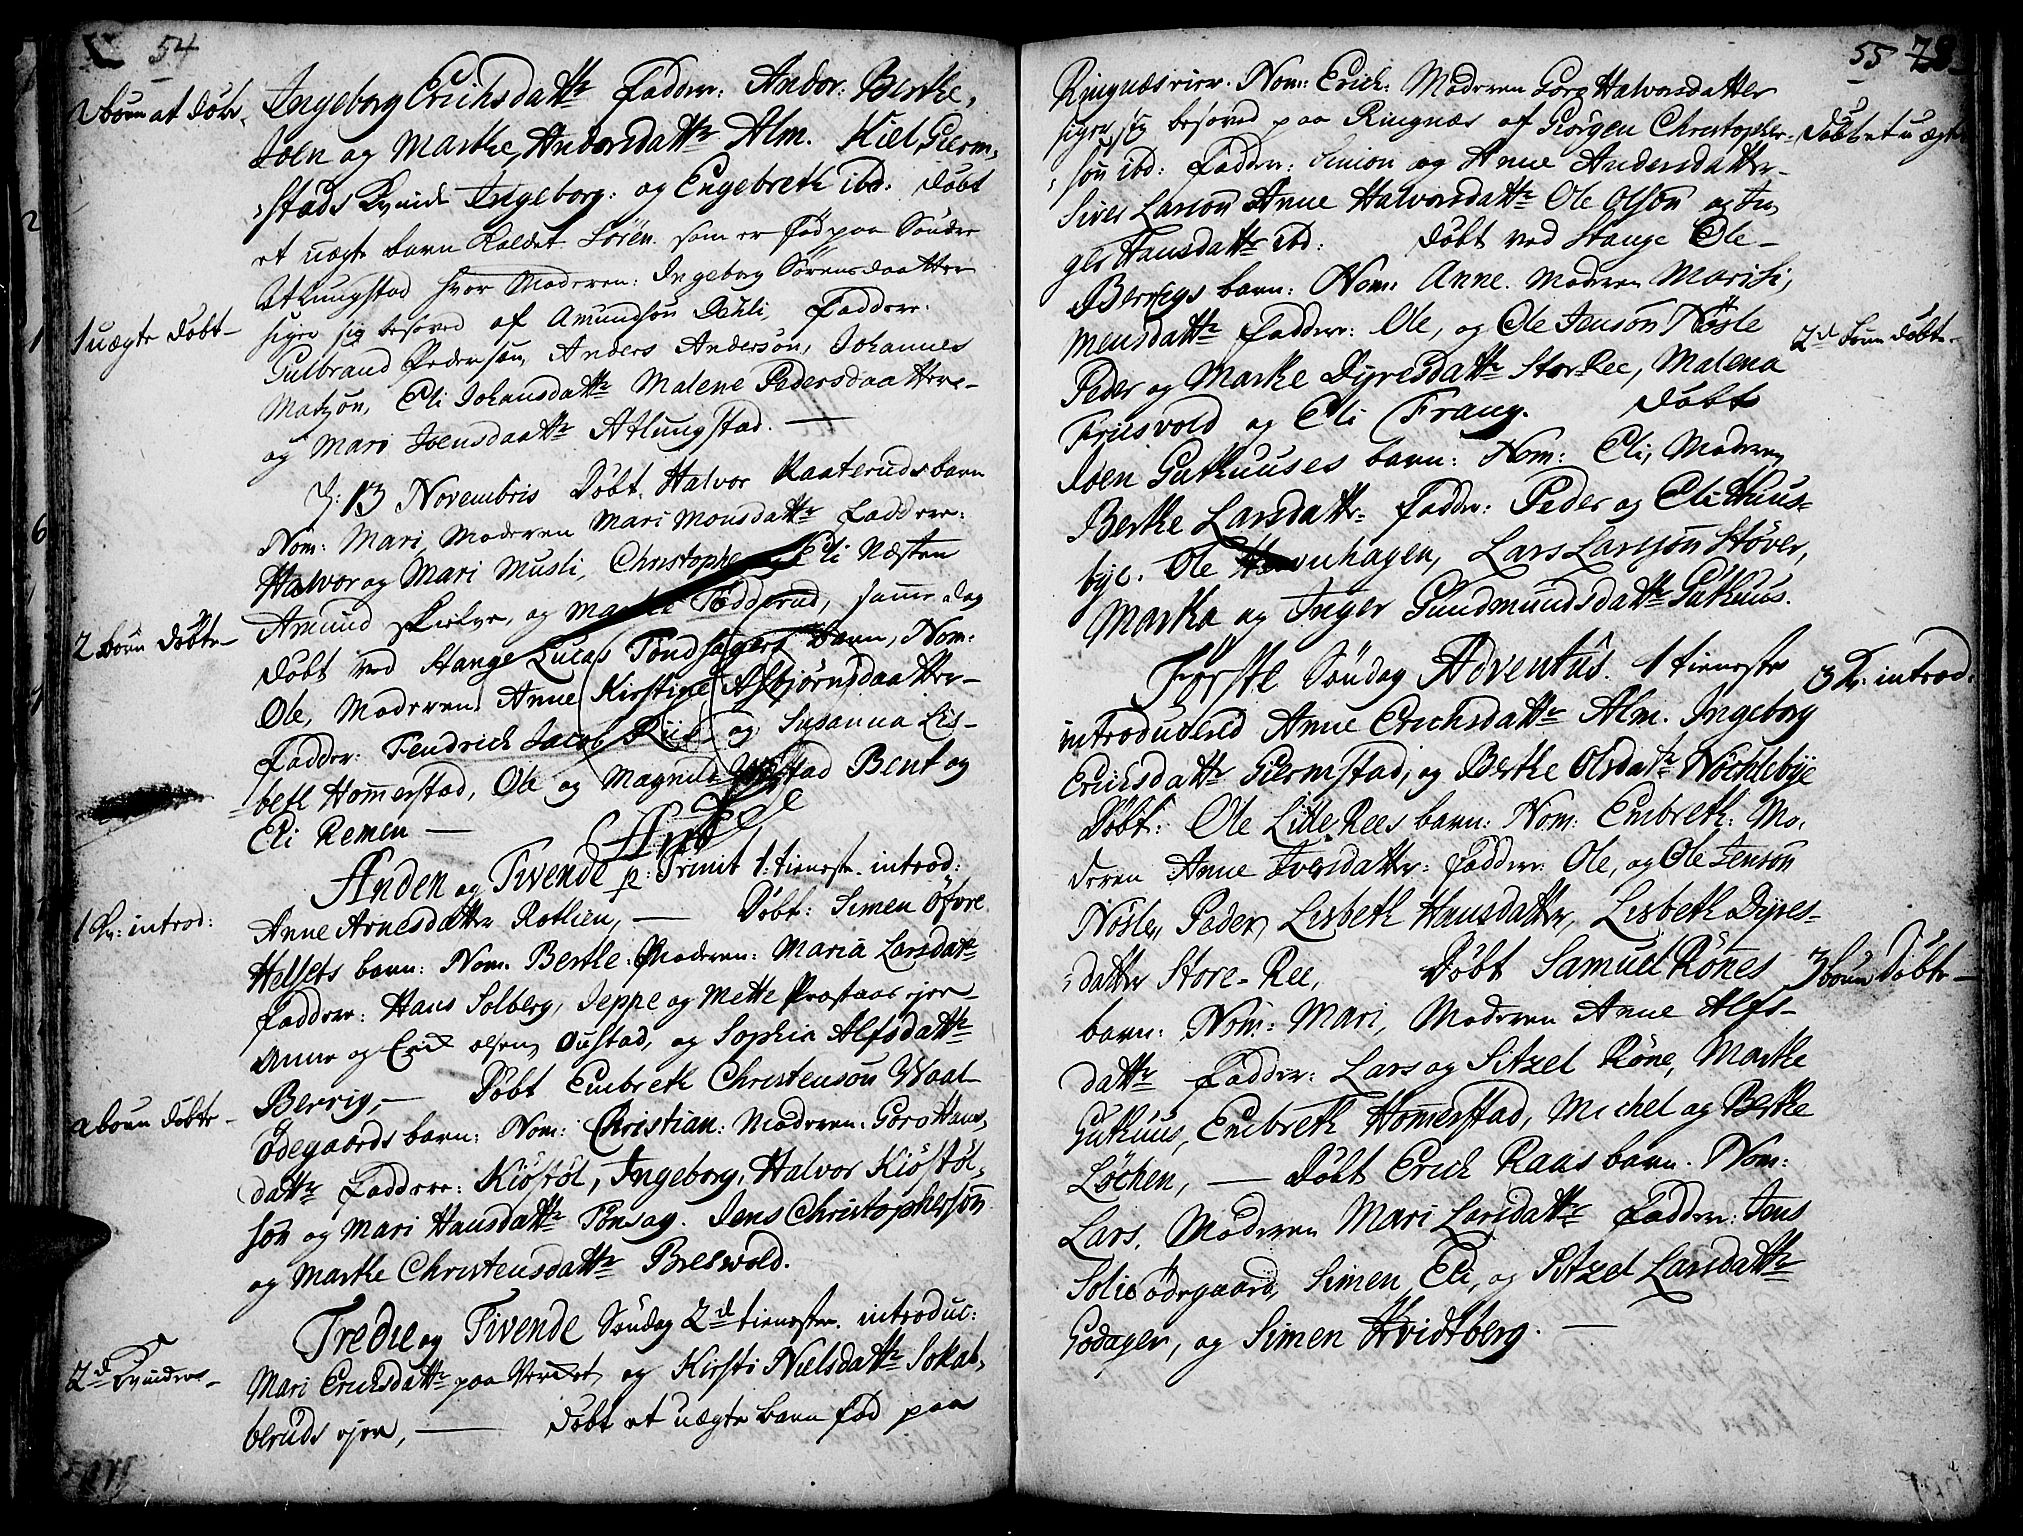 54
2 börn at döbe
Ingeborg Erichsdattr Faddere: Andor: Berthe,
Joen og Marthe Andorsdattr Alm. Kiel Gierm-
stads Kvinde Ingeborg: og Engebreth ibd: Döbt
et uægte barn Kaldet Sören. som er föd paa Söndre
Atlungstad hvor Moderen: Ingeborg Sörensdaatter
1 uægte döbt
siger sig besovet af Amundsön Dehli, Faddere:
Gulbrand Pedersön, Anders Andersön, Johannes
Matzön, Eli Johansdattr Malene Pedersdaatter
og Mari Joensdaattr Atlungstad. —
D: 13 Novembris Döbt, Halvor Raateruds barn
Nom: Mari, Moderen Mari Monsdattr Faddere:
Halvor og Mari Musli, Christopher og Eli Næsten
Amund og Marthe Tödderud, samme dag
2 börn döbte
döbt ved Stange Lucas Töndhagers barn, Nom:
Ole, Moderen Anne Kirstine Asbjörnsdaatter
Fadder: Fendrich Jacob Riis og Susanna Lis-
beth Hommerstad, Ole og Magnild Bent og
Eli Remen —
Anden og Tivende p: Trinit 1: tieneste. introd:
1 Kv: introd:
Anne Arnesdatter Rothlien, — Döbt: Simen Öfvre
Helsets barn: Nom. Berthe: Moderen: Maria Larsdattr
Faddere: Hans Solberg, Jeppe og Mette Præstaas ejer
Anne og Erik olsen Oustad, og Sophia Alfsdattr
2 börn döbte
Berrig, — Döbt Embreth Christensön Waal-
ödegaards barn: Nom: Christian: Moderen: Goro Hans-
dattr Faddere: Kiöstöl, Ingeborg, Halvor Kiöstöl-
sön og Mari Hansdattr Tönsag. Jens Christophersön
og Marthe Christensdattr Breswold.
Tredie og Tivende Söndag 2d tieneste. introduc:
2d Kvinder
Mari Erichsdattr paa Verket og Kirsti Nielsdattr Sokat-
beruds ejer, — Döbt et uægte barn föd paa
55 28
Ringnæs ejer. Nom: Erich: Moderen Goro Halvorsdatter
siger sig besovet paa Ringnæs af Giörgen Christopher-
Döbt et uægte
sön ibd: Fadder: Simon og Anne Andersdatter
Siver Larsön Anne Halvorsdattr Ole Olsön og In-
ger Hansdattr ibd: Döbt ved Stange Ole
Berrigs barn: Nom: Anne. Moderen Mari Si-
mensdattr Faddere: Ole, og Ole Jensön Nösle
2d börn döbte
Peder og Marthe Dyresdattr Store Ree, Malena
Friisvold og Eli Frang. Döbt
Joen Guthuuses barn: Nom: Eli, Moderen
Berthe Larsdattr Fadder: Peder og Eli Huus-
bye. Ole Hovenhagen, Lars Larssön Stöver,
Martha og Inger Gundmundsdattr Guthuus.
Förste Söndag Adventûs. 1 tieneste
3 Kv: introd:
introducered Anne Erichsdattr Alm. Ingeborg
Erichsdattr Giermstad, og Berthe Olsdattr Nöchlebye
Döbt: Ole Lille Rees barn: Nom: Embreth: Mo-
deren Anne Iversdatter: Faddere: Ole, og Ole Jensön
Nösle, Peder, Lisbeth Hansdatter, Lisbeth Dyres-
datter Store-Ree, Döbt Samuel Rönes
3 börn döbte
barn: Nom: Mari, Moderen Anne Alfs-
dattr Fadder: Lars og Sitzel Röne, Marthe
Guthuus, Embreth Hommerstad, Michel og Berthe
Löchen, — Döbt Erich Raas barn. Nom:
Lars, Moderen Mari Larsdattr Fadder: Jens
Solie ödegaard, Simen Eli, og Sitzel Larsdattr
Godager, og Simen Hvidtberg. —